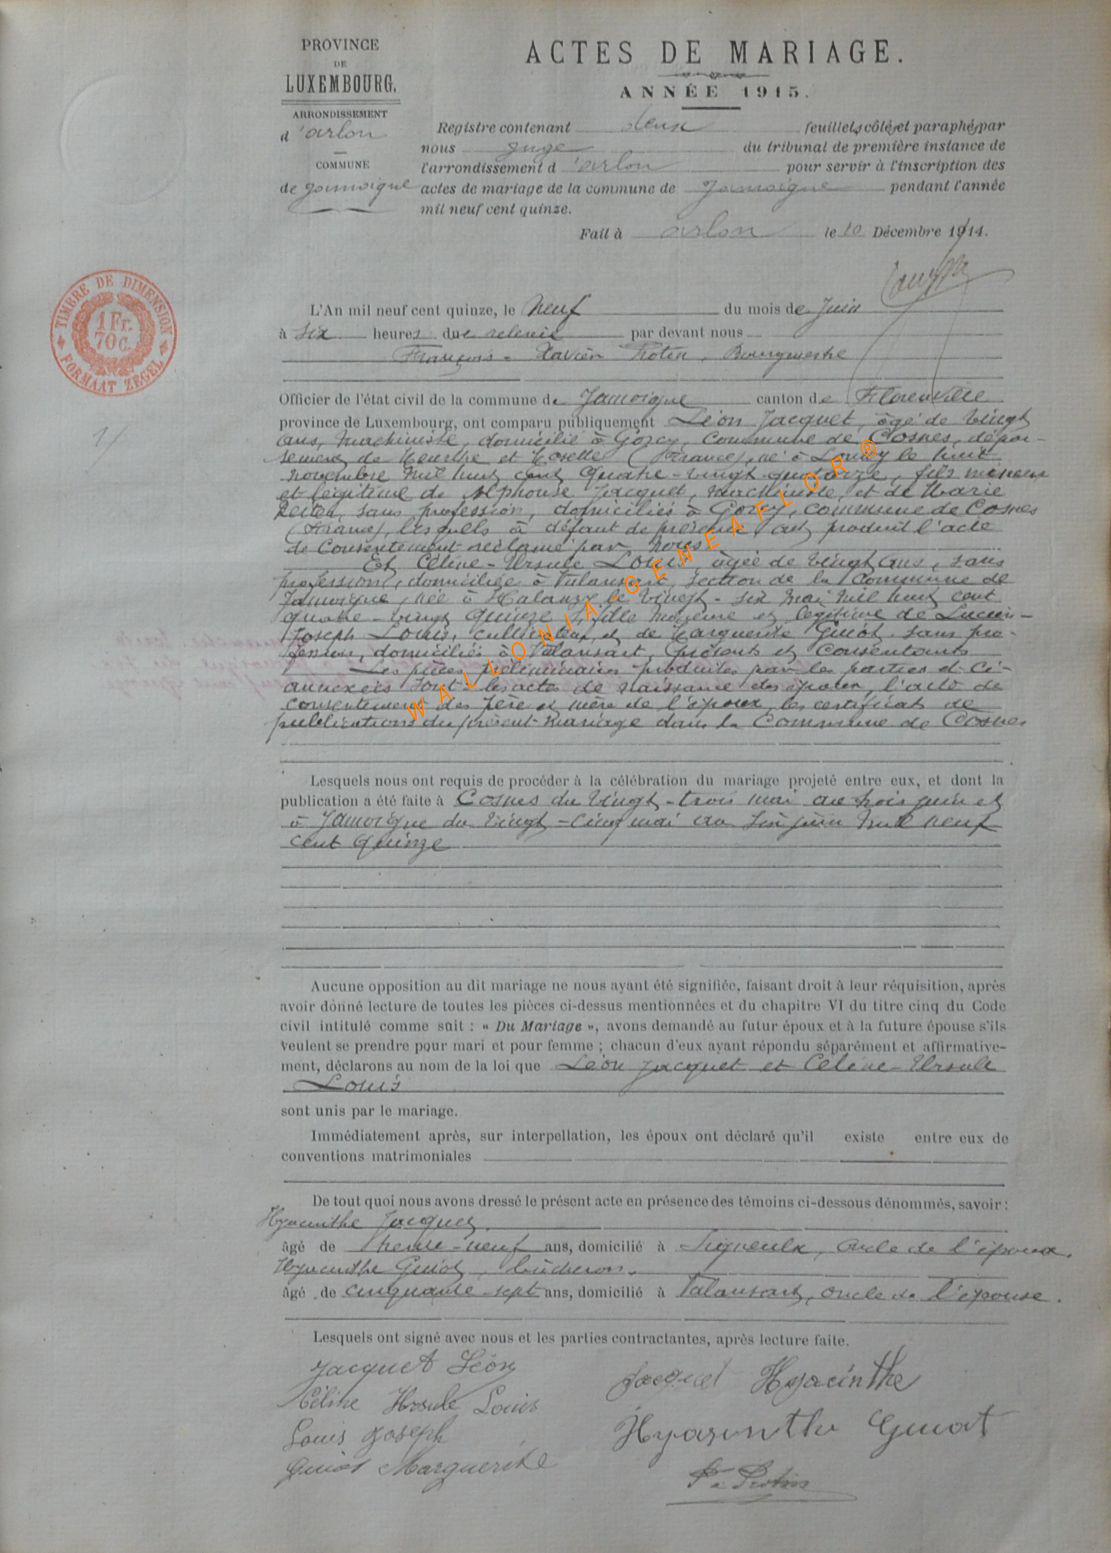 PROVINCE
DE
LUXEMBOURG.
ARRONDISSEMENT
d'arlon
COMMUNE
de Jamoigne
ACTES DE MARIAGE.
ANNÉE 1915.
Registre contenant deux feuillets côtés et paraphés par
nous juge du tribunal de première instance de
l'arrondissement d'arlon pour servir à l'inscription des
actes de mariage de la commune de Jamoigne pendant l'année
mil neuf cent quinze.
Fait à arlon le 10 Décembre 1914.
TIMBRE DE DIMENSION
1 Fr.
70 c.
FORMAAT ZEGEL
1/
L'An mil neuf cent quinze, le Neuf du mois de Juin
à six heures de relevée par devant nous
François-Xavier Protin, Bourgmestre
Officier de l'état civil de la commune de Jamoigne canton de Florenville
province de Luxembourg, ont comparu publiquement Léon Jacquet, âgé de vingt
ans, machiniste, domicilié à Gorcy, commune de Cosnes, dépar-
tement de Meurthe et Moselle (France), né à Longwy le huit
novembre mil huit cent quatre-vingt quatorze, fils mineur
et légitime de Alphonse Jacquet, machiniste, et de Marie
sans profession, domiciliés à Gorcy, commune de Cosnes
(France), lesquels à défaut de présence ont produit l'acte
de consentement réclamé par nous.
Et Céline-Ursule Louis, âgée de vingt ans, sans
profession, domiciliée à Valansart, section de la commune de
Jamoigne, née à Halanzy le vingt-six mai mil huit cent
quatre-vingt quinze, fille mineure et légitime de Lucien-
Joseph Louis, cultivateur, et de Marguerite Guiot, sans pro-
fession, domiciliés à Valansart, présents et consentants
Les pièces préliminaires produites par les parties et ci-
annexées sont: les actes de naissance des époux, l'acte de
consentement des père et mère de l'époux, les certificats de
publications du présent mariage dans la commune de Cosnes
WALLONIA-GENEAFLOR®
Lesquels nous ont requis de procéder à la célébration du mariage projeté entre eux, et dont la
publication a été faite à Cosnes du vingt-trois mai au trois juin et
à Jamoigne du vingt-cinq mai au six juin mil neuf
cent quinze
Aucune opposition au dit mariage ne nous ayant été signifiée, faisant droit à leur réquisition, après
avoir donné lecture de toutes les pièces ci-dessus mentionnées et du chapitre VI du titre cinq du Code
civil intitulé comme suit : « Du Mariage », avons demandé au futur époux et à la future épouse s'ils
veulent se prendre pour mari et pour femme ; chacun d'eux ayant répondu séparément et affirmative-
ment, déclarons au nom de la loi que Léon Jacquet et Céline-Ursule
Louis
sont unis par le mariage.
Immédiatement après, sur interpellation, les époux ont déclaré qu'il existe entre eux de
conventions matrimoniales
De tout quoi nous avons dressé le présent acte en présence des témoins ci-dessous dénommés, savoir :
Hyacinthe Jacquet
âgé de trente-neuf ans, domicilié à Signeulx, oncle de l'époux.
Hyacinthe Guiot, bûcheron,
âgé de cinquante-sept ans, domicilié à Valansart, oncle de l'épouse.
Lesquels ont signé avec nous et les parties contractantes, après lecture faite.
Jacquet Léon
Jacquet Hyacinthe
Céline Ursule Louis
Louis Joseph
Hyasinthe Guiot
Guiot Marguerite